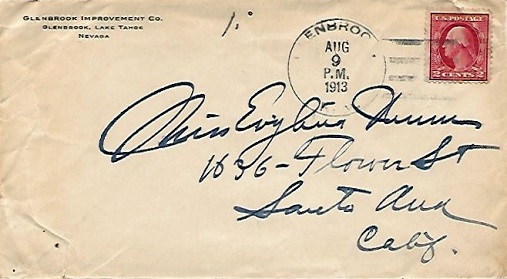 GLENBROOK IMPROVEMENT CO.
GLENBROOK, LAKE TAHOE
NEVADA
ENBROO
AUG
9
P.M.
1913
U.S. POSTAGE
2 CENTS 2
Miss
1836-Flower St
Santa Ana
Calif.